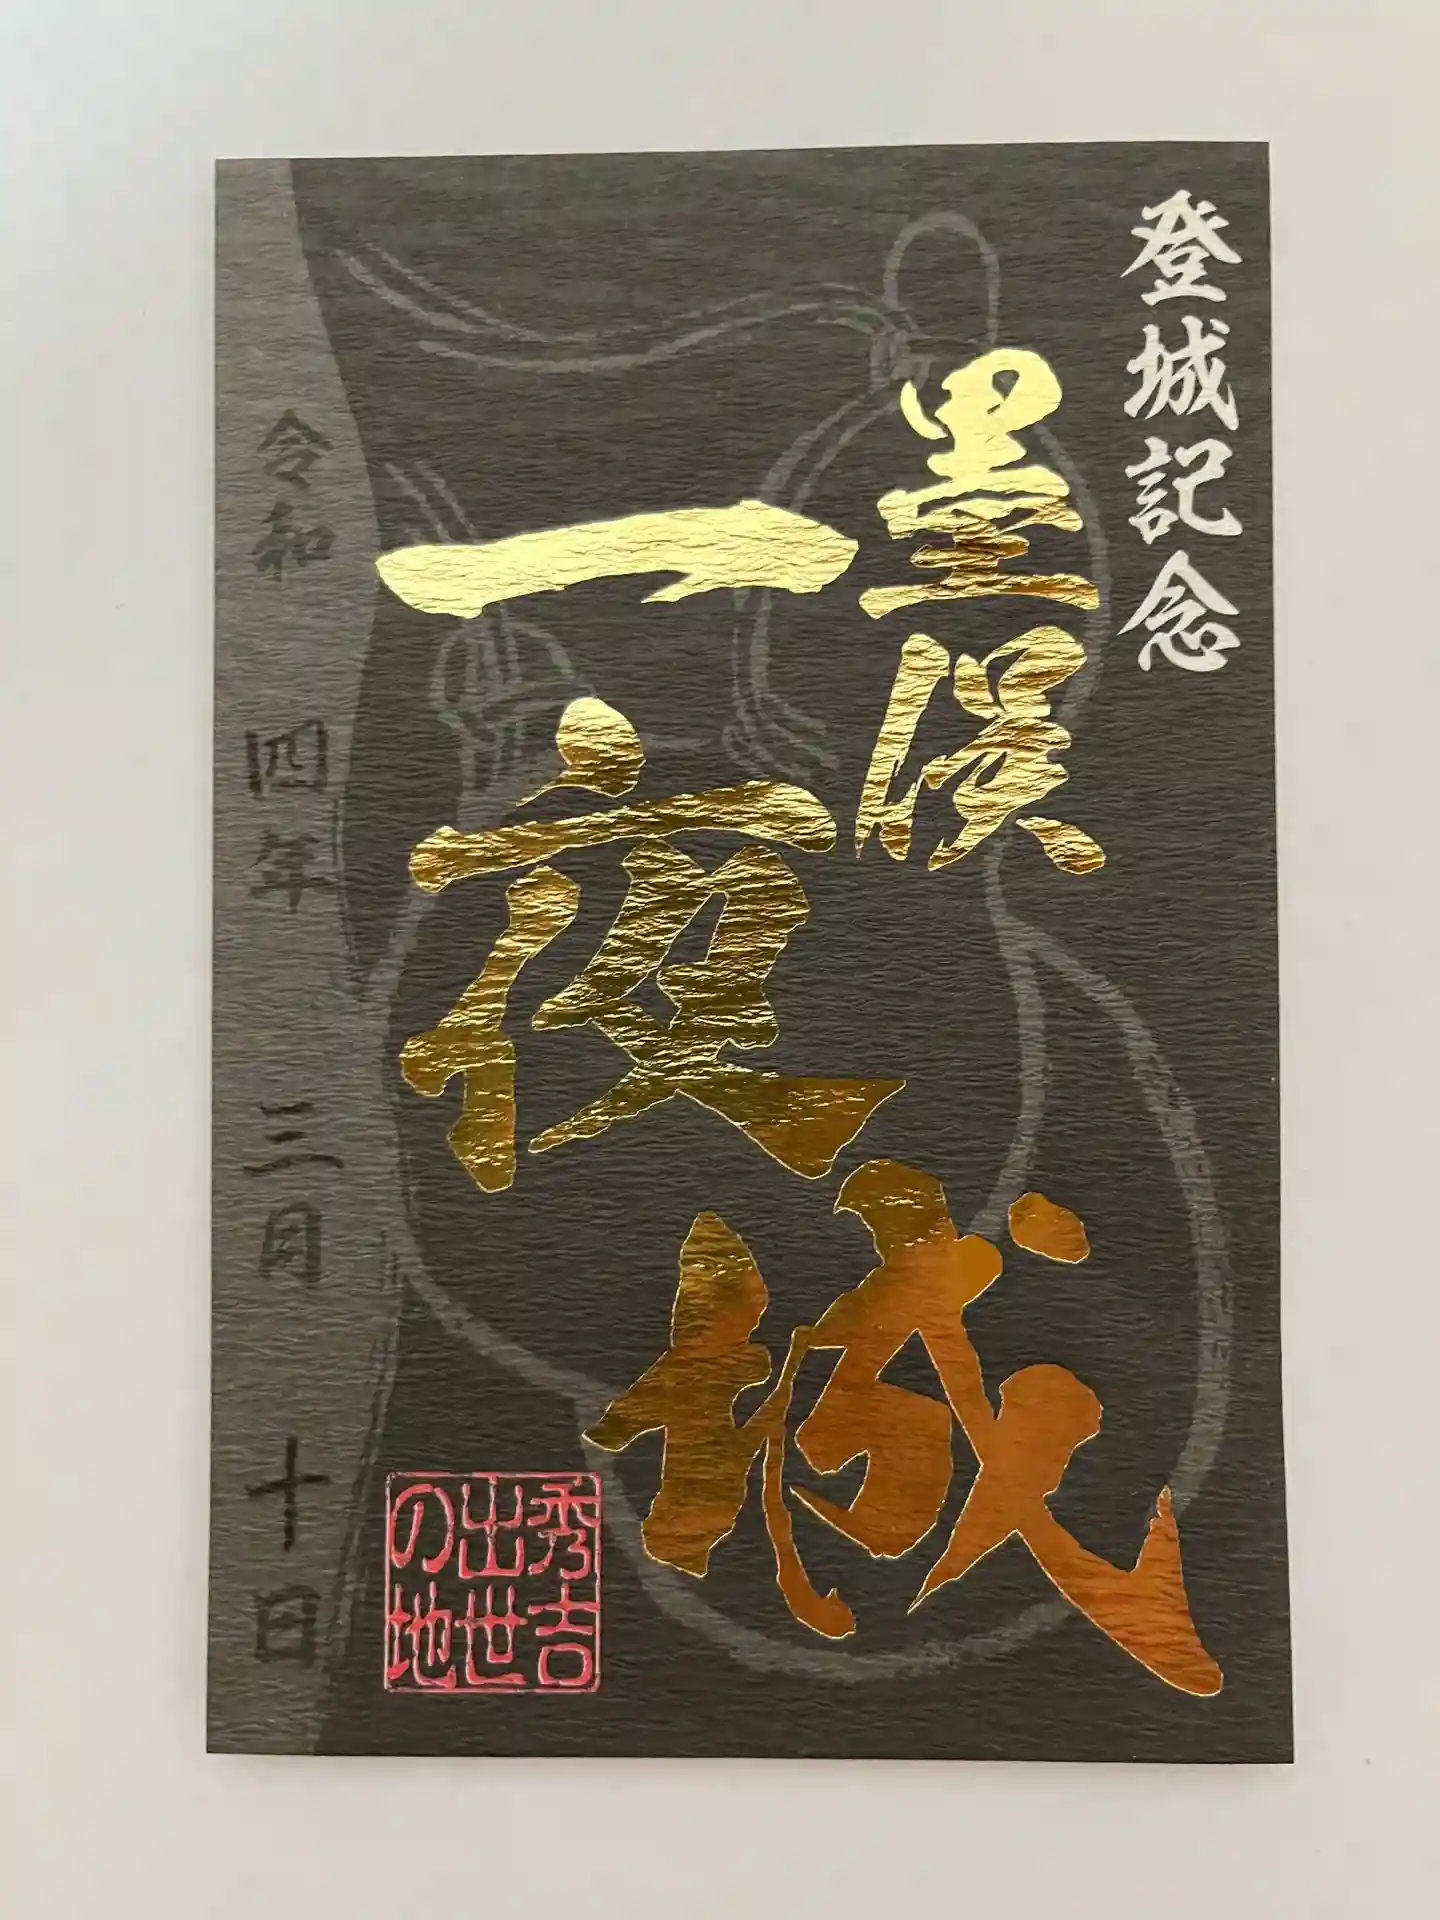 登城記念
墨俣
一夜城
秀吉
出世
の地
令和 四年 三月 十日